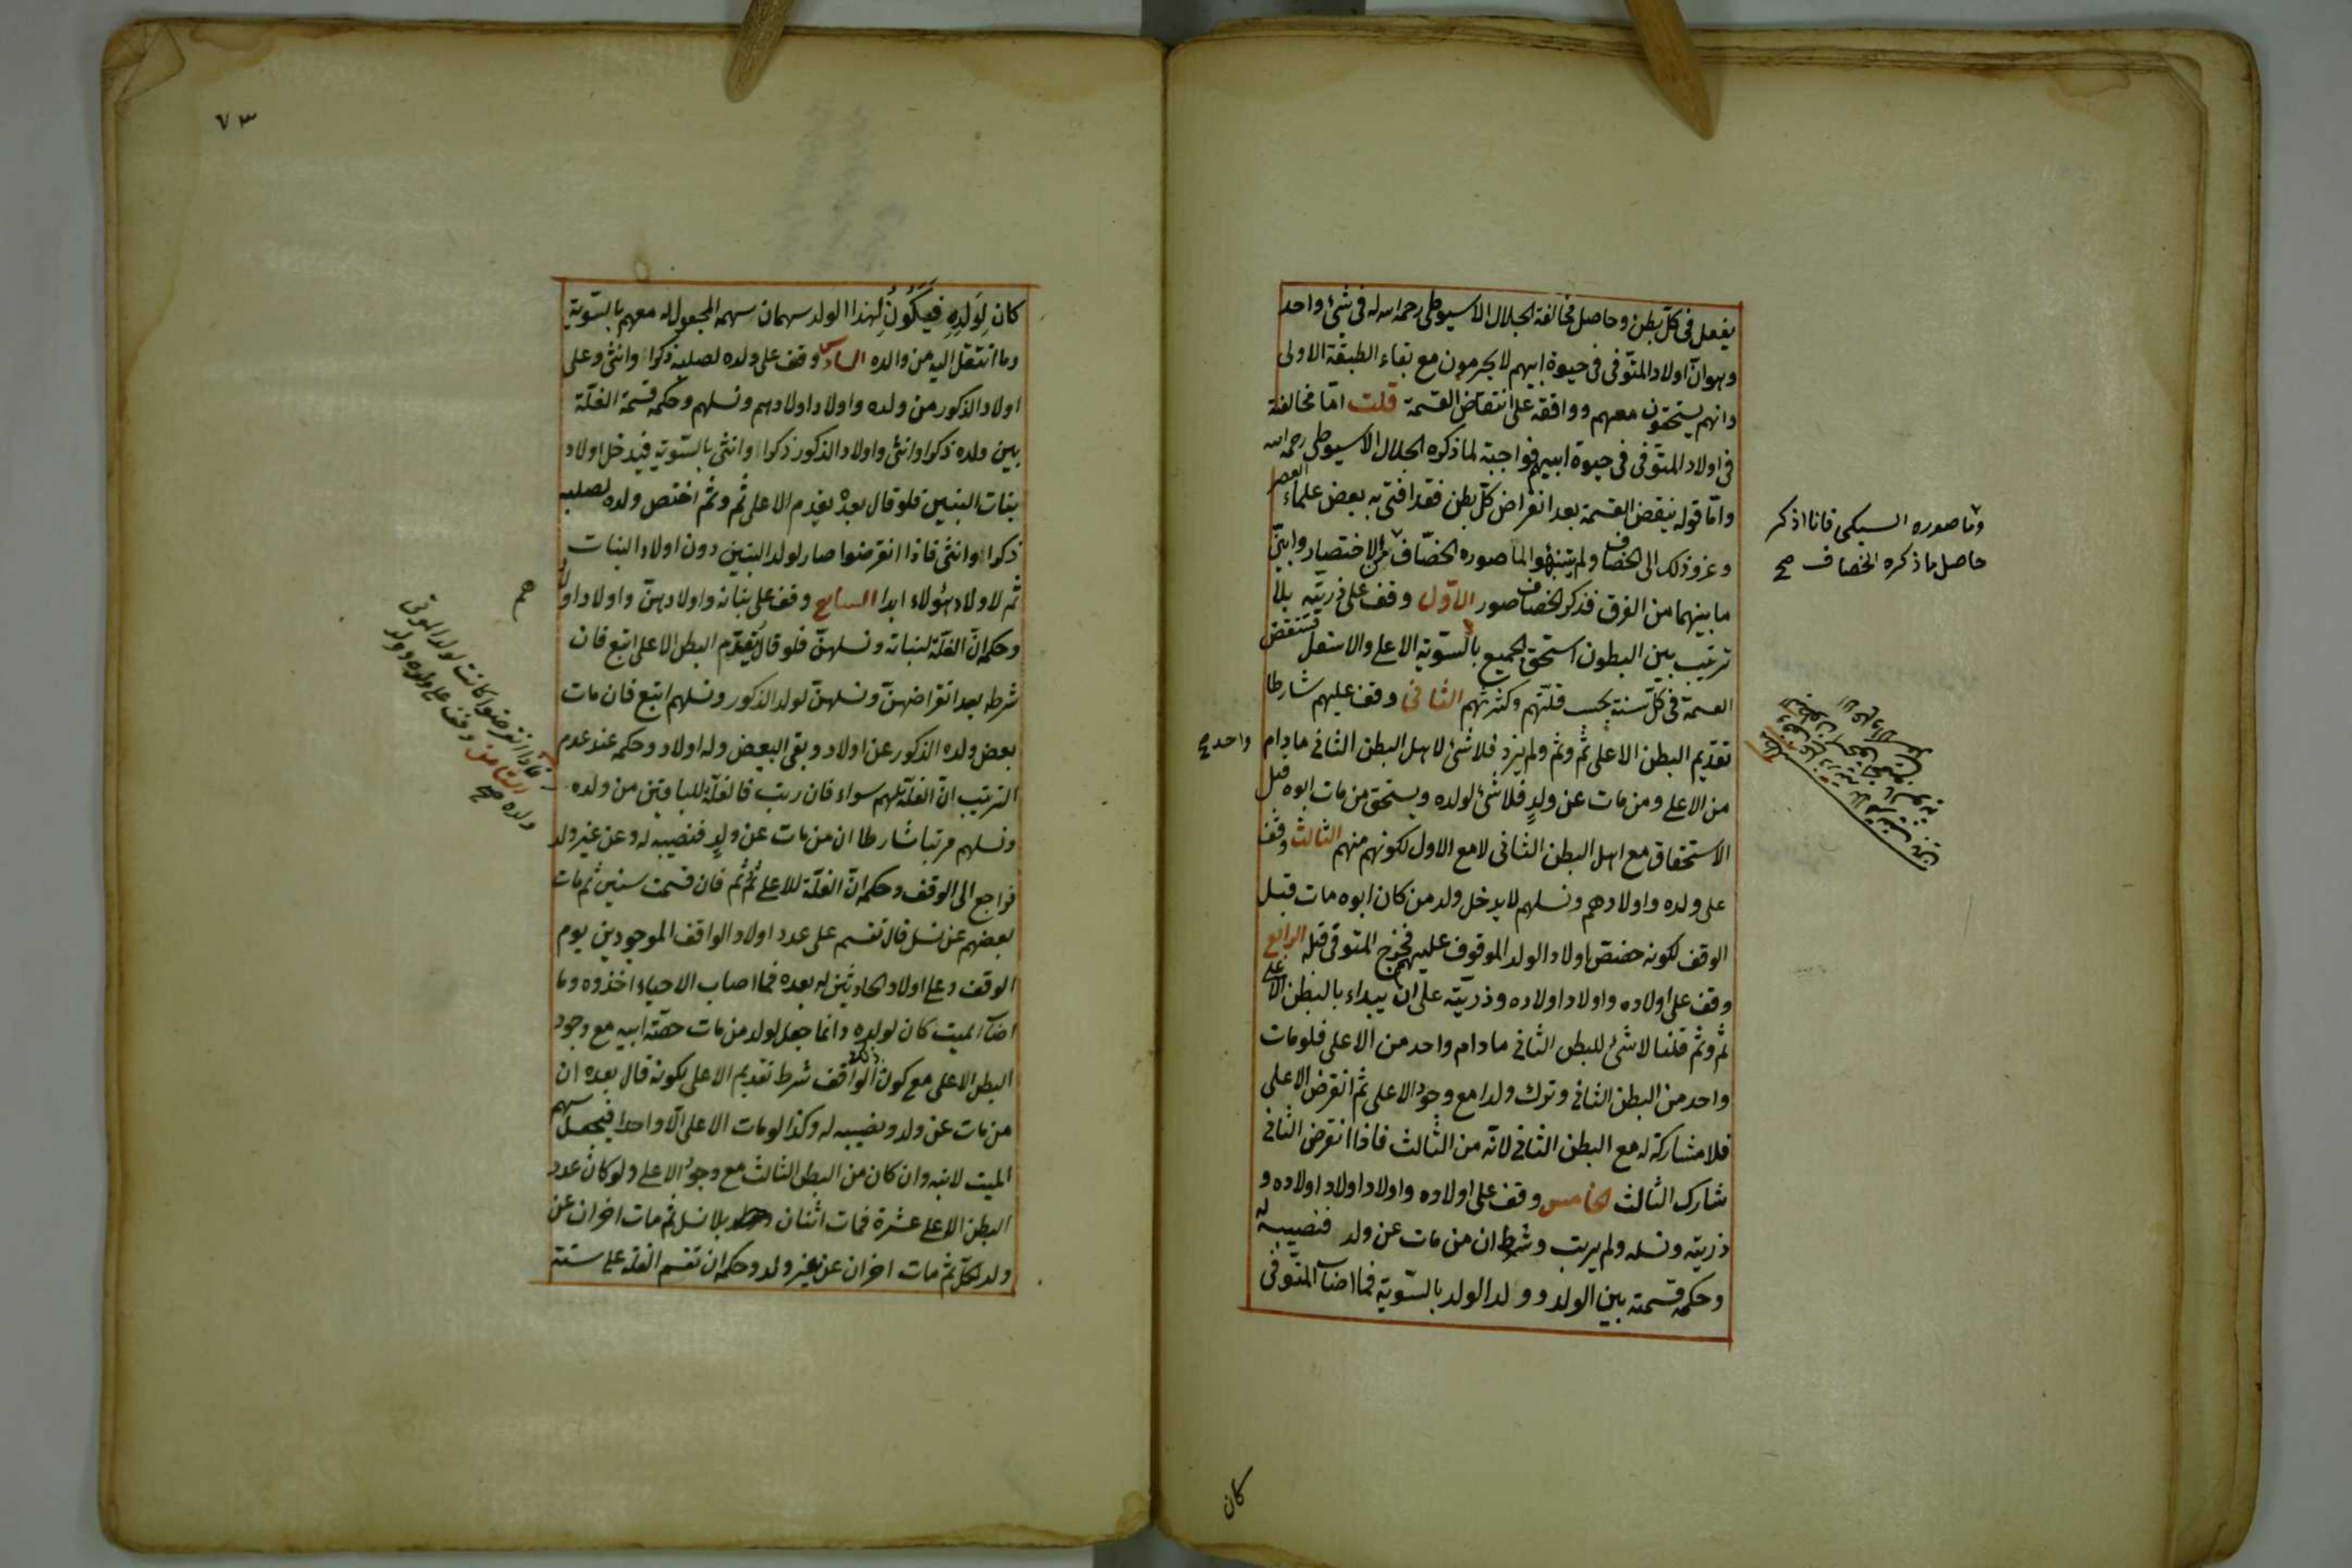 يفعل فى كلّ بطن وحاصل مخالفة الجلال الاسيوطى رحمه الله له فى شئ واحد
وهو ان اولاد المتوفى فى حيوة ابيهم لا يحرمون مع بقاء الطبقة الاولى
وانهم يستحقون معهم ووافقه على انتقاض القسمة قلت امّا مخالفة
فى اولاد المتوفى فى حيوة ابيهم فواجبة لما ذكره الجلال الاسيوطى رحمه الله
وامّا قوله ينقض القسمة بعد انقراض كلّ بطن فقد افتى به بعض علماء العصر
وعزو ذلك الى الخصاف ولم يتنبهوا لما صوره الخصّاف على الاختصار وابيّن
وما صوره السبكى فانا اذكر
حاصل ما ذكره الخصاف صح
ما بينهما من الفرق فذكر الخصاف صور الاوّل وقف على ذريته بلا
ترتيب بين البطون استحق الجميع بالسّوية الاعلى والاسفل فتنتقض
القسمة فى كلّ سنة بحسب قلّتهم وكثرتهم الثانى وقف عليهم شارطا
تقديم البطن الاعلى ثم وثم ولم يزد فلا شئ لاهل البطن الثانى مادام
واحد صح
من الاعلى ومن مات عن ولدٍ فلا شئ لولده ويستحق من مات ابوه قبل
الاستحقاق مع اهل البطن الثانى لا مع الاول لكونهم منهم الثالث وقف
على ولده واولادهم ونسلهم لا يدخل ولد من كان ابوه مات قبل
الوقف لكونه خصّص اولاد الولد الموقوف عليهم فخرج المتوفى قبله الرابع
وقف على اولاده واولاد اولاده وذريّته على ان يبداء بالبطن الاعلى
ثم وثم قلنا لا شئ للبطن الثانى مادام واحد من الاعلى فلو مات
واحد من البطن الثانى وترك ولدا مع وجود الاعلى ثم انقرض الاعلى
فلا مشاركة له مع البطن الثانى لانّه من الثالث فاذا انقرض الثانى
شارك الثالث الخامس وقف على اولاده واولاد اولاد اولاده و
ذريته ونسله ولم يرتب وشرط ان من مات عن ولد فنصيبه له
وحكمه قسمته بين الولد وولد الولد بالسّوية فما اصاب المتوفى
كان
٧٣
كان لِوَلَدِهِ فَيَكُونُ لهذا الولد سهمان سهمه المجعول له معهم بالسّوية
وما انتقل اليه من والده السادس وقف على ولده لصلبه ذكرا وانثى وعلى
اولاد الذكور من ولده واولاد اولادهم ونسلهم وحكمه قسمة الغلّة
بين ولده ذكرا وانثى واولاد الذكور ذكرا وانثى بالسّوية فيدخل اولاد
بنات البنين فلو قال بعده يقدم الاعلى ثم وثم اختص ولده لصلبه
ذكرا وانثى فاذا انقرضوا صار لولد البنين دون اولاد البنات
ثم لاولاد هؤلاء ابدا السابع وقف على بناته واولادهنّ واولاد
وحكمه انّ الغلّة لبناته ونسلهنّ فلو قال يُقدّم البطن الاعلى اتبع فان
شرطه بعد انقراضهنّ ونسلهنّ لولد الذكور ونسلهم اتبع فان مات
بعض ولده الذكور عن اولاد وبقى البعض وله اولاد وحكمه عند عدم
الترتيب انّ الغلّة لهم سواء فان رتب فالغلّة للباقين من ولده
فاذا انقرضوا كانت لولد الموتى
الثامن وقف على ولده وولد
ولده صح
ونسلهم مرتبا شارطا ان من مات عن ولدٍ فنصيبه له وعن غير ولد
فراجع الى الوقف وحكمه انّ الغلّة للاعلى ثم ثم فان قسمت سنين ثم مات
بعضهم عن نسل قال تقسم على عدد اولاد الواقف الموجودين يوم
الوقف وعلى اولاد الحادثين له بعده فما اصاب الاحياء اخذوه وما
اصاب الميت كان لولده وانما جعل لولد من مات حصّة ابيه مع وجود
البطن الاعلى مع كون الواقف شرط تقديم الاعلى لكونه قال بعده ان
من مات عن ولد ونصيبه له وكذا لو مات الاعلى الّا واحدا فيجعل سهم
الميت لابنه وان كان من البطن الثالث مع وجود الاعلى ولو كان عدد
البطن الاعلى عشرة فمات اثنان بلا نسل ثم مات اخران عن
ولد لكلّ ثم مات اخران عن غير ولد وحكمه ان تقسم الغلة على ستة